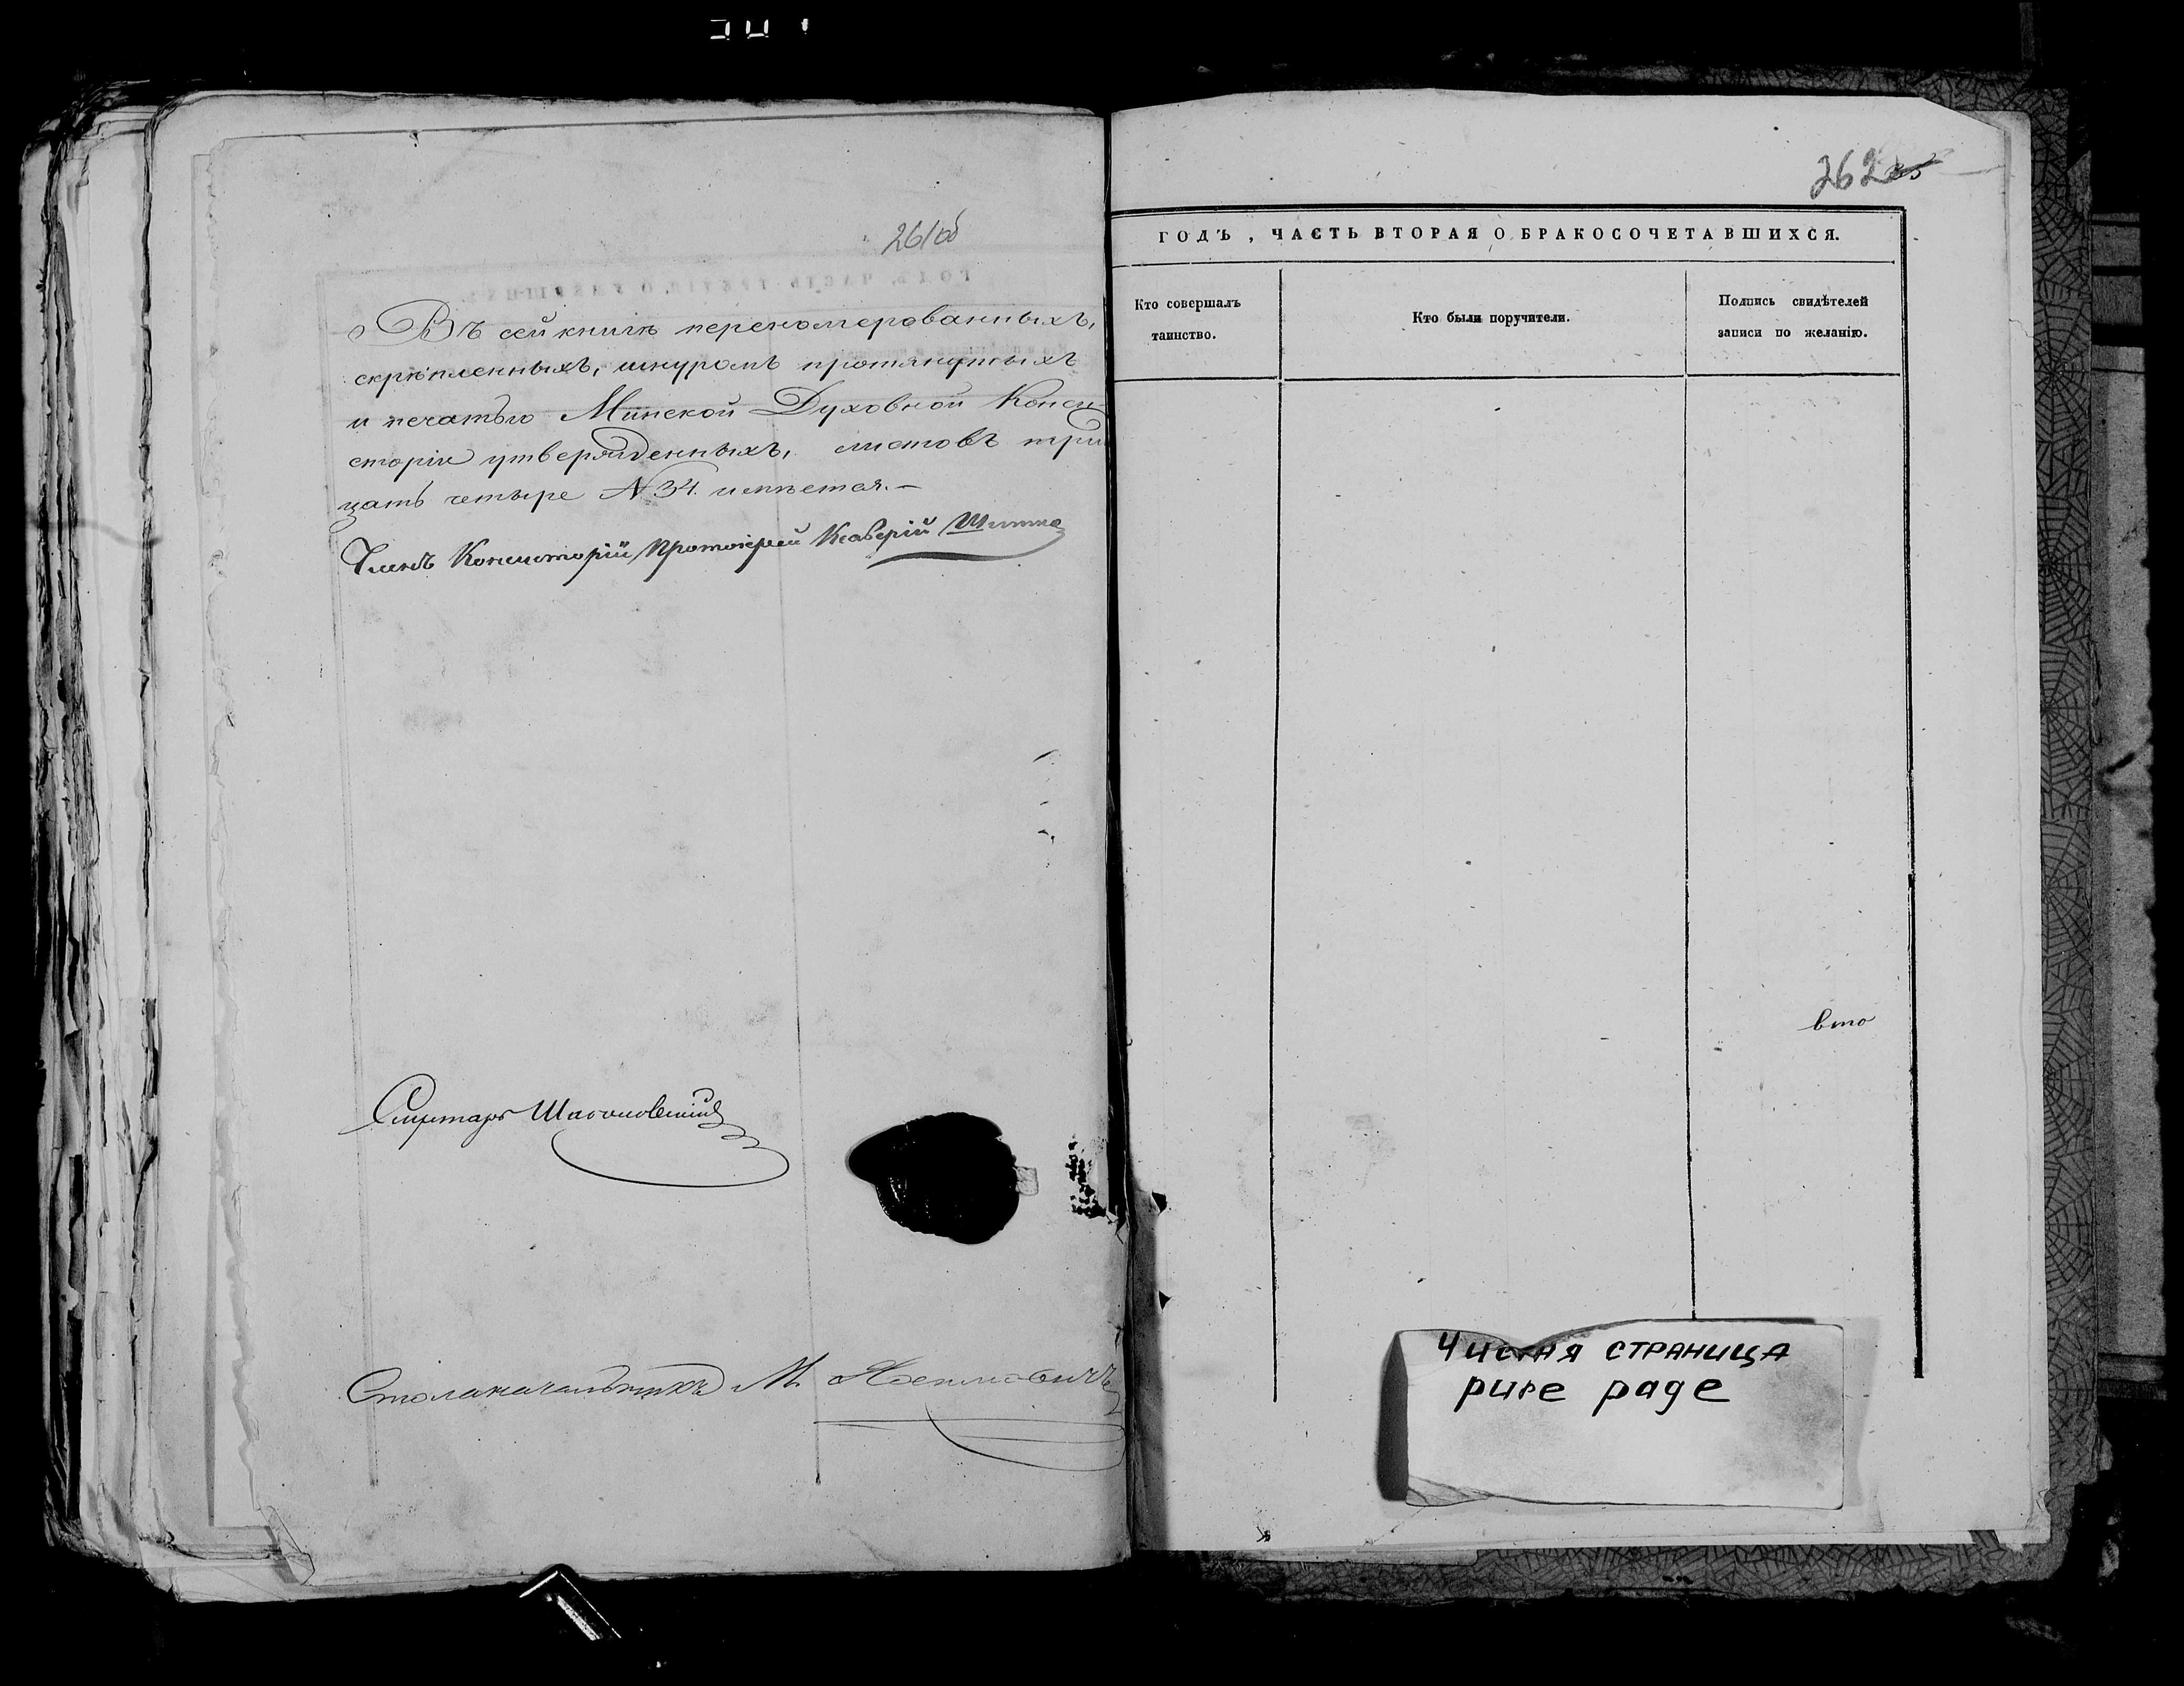 261об
Въ сей книгѣ переномерованныхъ,
скрѣпленныхъ, шнуромъ протянутыхъ
и печатью Минской Духовной Конси-
сторіи утвержденныхъ, листовъ трид
цать четыре № 34. имѣется.—
Членъ Консисторіи Протоіерей Ксаверій
Секретарь
Столоначальникъ М.
262
ГОДЪ, ЧАСТЬ ВТОРАЯ О БРАКОСОЧЕТАВШИХСЯ.
Кто совершалъ
таинство.
Кто были поручители.
Подпись свидѣтелей
записи по желанію.
вто
Чистая СТРАНИЦА
pure page